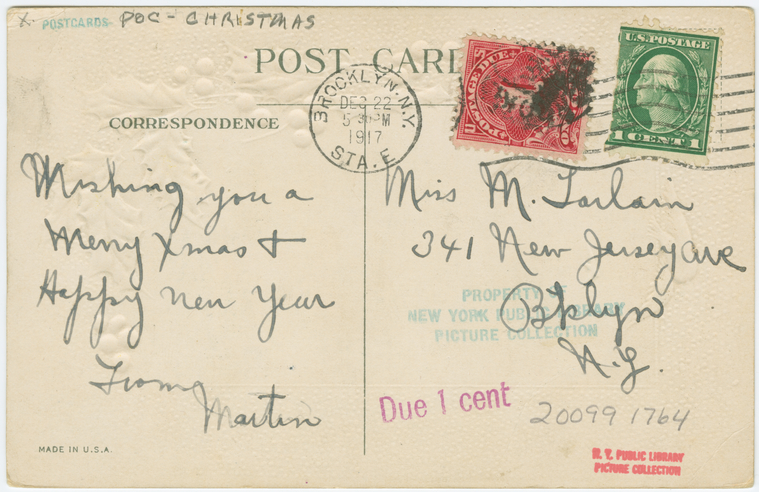 X POSTCARDS POC - CHRISTMAS
POST CAR
CORRESPONDENCE
BROOKLYN, N.Y.
DEC 22
5 30 PM
1917
STA. E
POSTAGE DUE
ONE
U.S. POSTAGE
1 CENT 1
Wishing you a
Merry Xmas &
Happy New Year
From
Martin
Miss M.
341 New Jersey ave
Bklyn
N.Y.
PROPERTY OF
NEW YORK PUBLIC LIBRARY
PICTURE COLLECTION
Due 1 cent
20099 1764
MADE IN U.S.A.
N. Y. PUBLIC LIBRARY
PICTURE COLLECTION